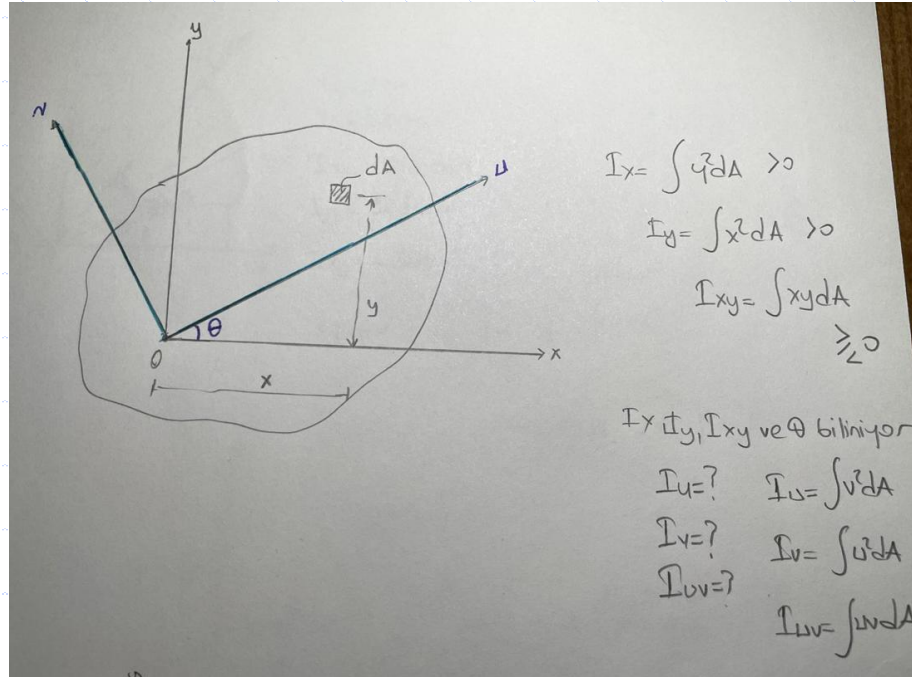 y
v
dA
u
Ix= ∫y²dA >0
Iy= ∫x²dA >0
y
Ixy= ∫xydA
θ
≥≤0
O
x
x
Ix, Iy, Ixy ve θ biliniyor
Iu=? Iu= ∫v²dA
Iv=? Iv= ∫u²dA
Iuv=?
Iuv= ∫uvdA